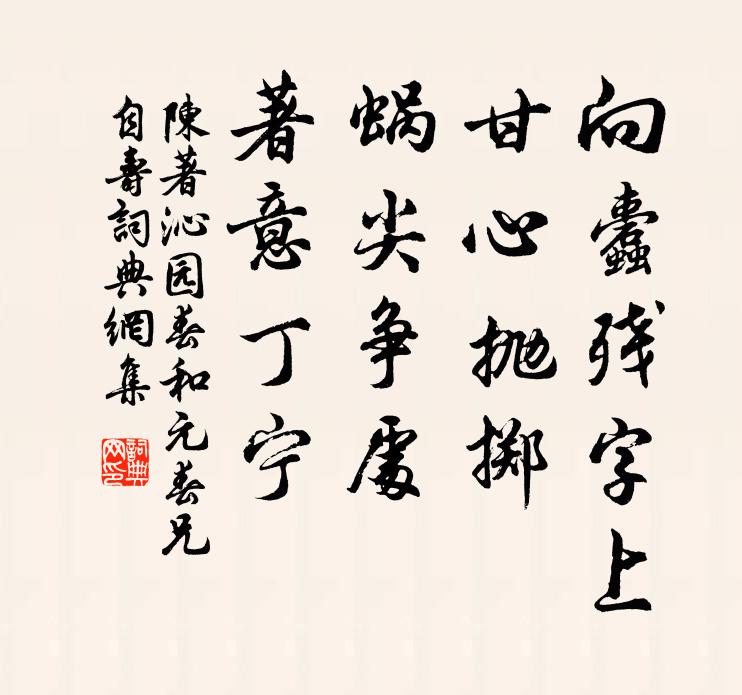 向蠹残字上
甘心抛掷
蜗尖争處
著意丁宁
陳著沁园春和元春兄
自壽詞典網集
詞典網印